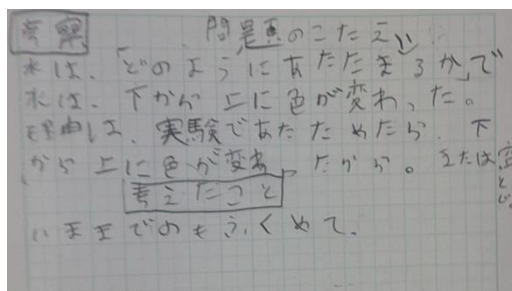 考察 問題のこたえ
水は、どのようにあたたまるか、で
水は、下から上に色が変わった。
理由は、実験であたためたら、下
から上に色が変わったから。または空
考えたこと
いままでのもふくめて、